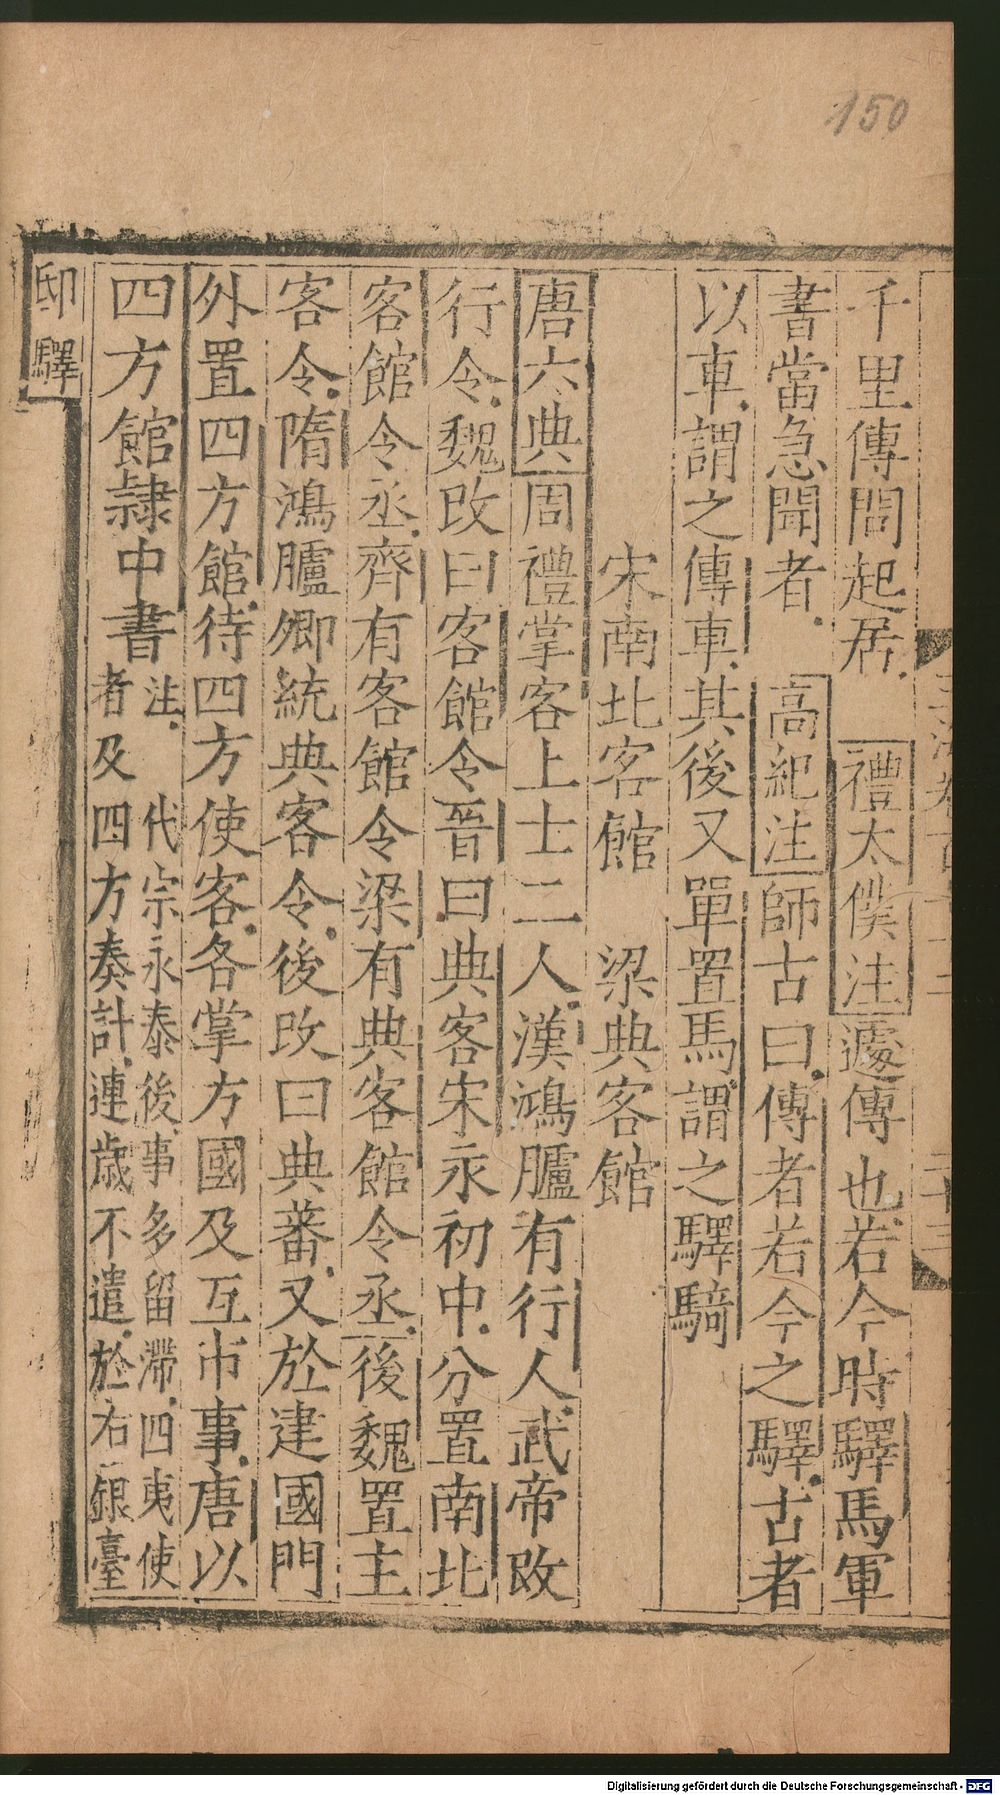 150
千里傳問起居禮太僕注遽傳也若今時驛馬軍
書當急聞者高紀注師古曰傳者若今之驛古者
以車謂之傳車其後又單置馬謂之驛騎
宋南北客館 梁典客館
唐六典周禮掌客上士二人漢鴻臚有行人武帝改
行令魏改曰客館令晉曰典客宋永初中分置南北
客館令丞齊有客館令梁有典客館令丞後魏置主
客令隋鴻臚卿統典客令後改曰典蕃又於建國門
外置四方館待四方使客各掌方國及互市事唐以
四方館隷中書
注代宗永泰後事多留滯四夷使
者及四方奏計連歲不遣於右銀臺
邸驛
Digitalisierung gefördert durch die Deutsche Forschungsgemeinschaft - DFG